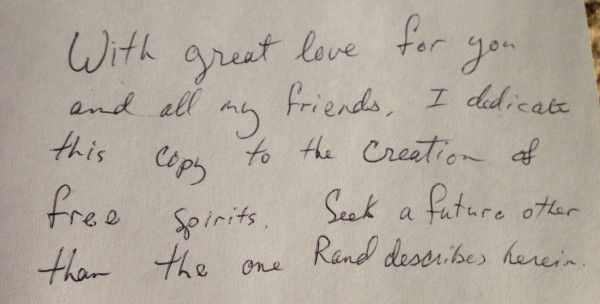 With great love for you
and all my friends, I dedicate
this copy to the creation of
free spirits. Seek a future other
than the one Rand describes herein.